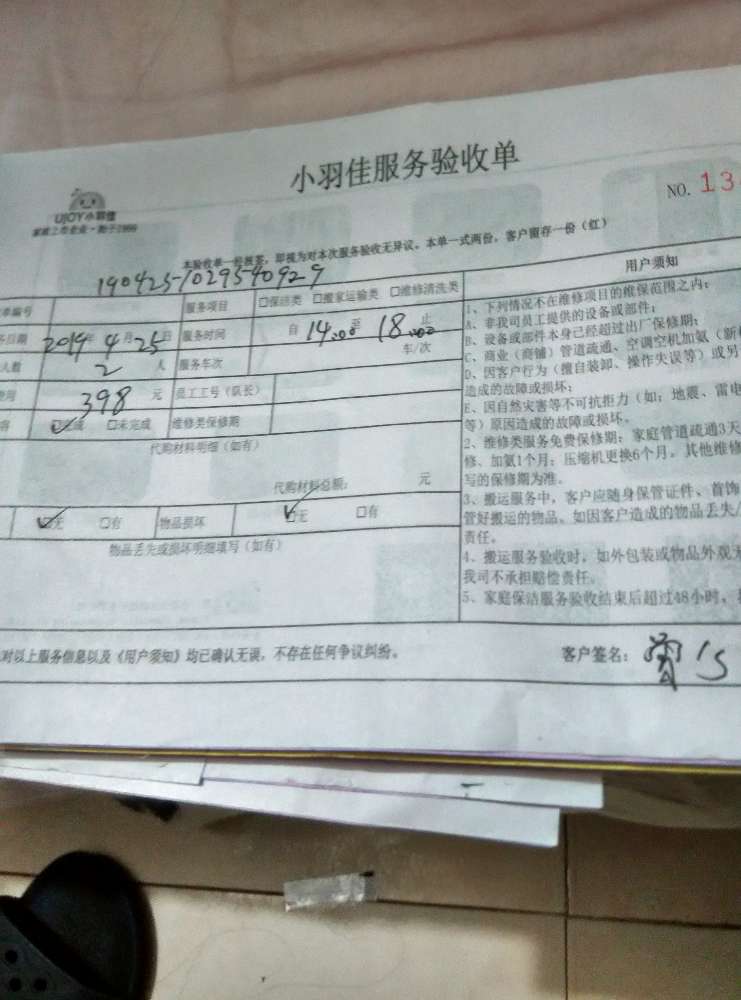 小羽佳服务验收单
NO. 13
UJOY小羽佳
家政上市企业·始于1999
本验收单一经签署，即视为对本次服务验收无异议。本单一式两份，客户留存一份（红）
190425-1029540929
单编号
服务项目 □保洁类 □搬家运输类 □维修清洗类
务日期 2019年4月25日 服务时间 自 14:00 至 18:00 止
人数 2 人 服务车次 车/次
费用 398 元 员工工号（队长）
容 ☑完成 □未完成 维修类保修期
代购材料明细（如有）
代购材料总额： 元
☑无 □有 物品损坏 ☑无 □有
物品丢失或损坏明细填写（如有）
用户须知
1、下列情况不在维修项目的维保范围之内：
A、非我司员工提供的设备或部件；
B、设备或部件本身已经超过出厂保修期；
C、商业（商铺）管道疏通、空调空机加氨（新
D、因客户行为（擅自装卸、操作失误等）或另
造成的故障或损坏；
E、因自然灾害等不可抗拒力（如：地震、雷电
等）原因造成的故障或损坏。
2、维修类服务免费保修期：家庭管道疏通3天
修、加氨1个月；压缩机更换6个月，其他维修
写的保修期为准。
3、搬运服务中，客户应随身保管证件、首饰
管好搬运的物品。如因客户造成的物品丢失/
责任。
4、搬运服务验收时，如外包装或物品外观无
我司不承担赔偿责任。
5、家庭保洁服务验收结束后超过48小时，
对以上服务信息以及《用户须知》均已确认无误，不存在任何争议纠纷。
客户签名：